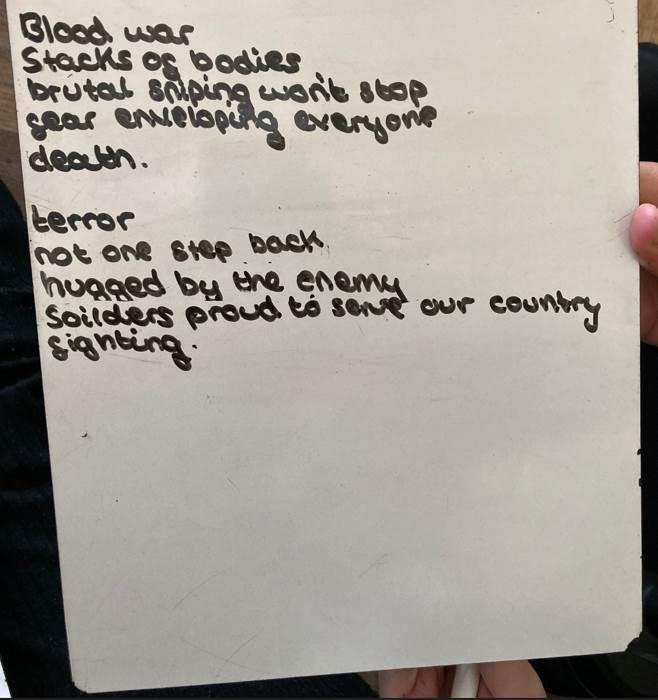 Blood war
Stacks of bodies
brutal sniping won't stop
fear enveloping everyone
death.
terror
not one step back
hugged by the enemy
Soilders proud to serve our country
fighting.